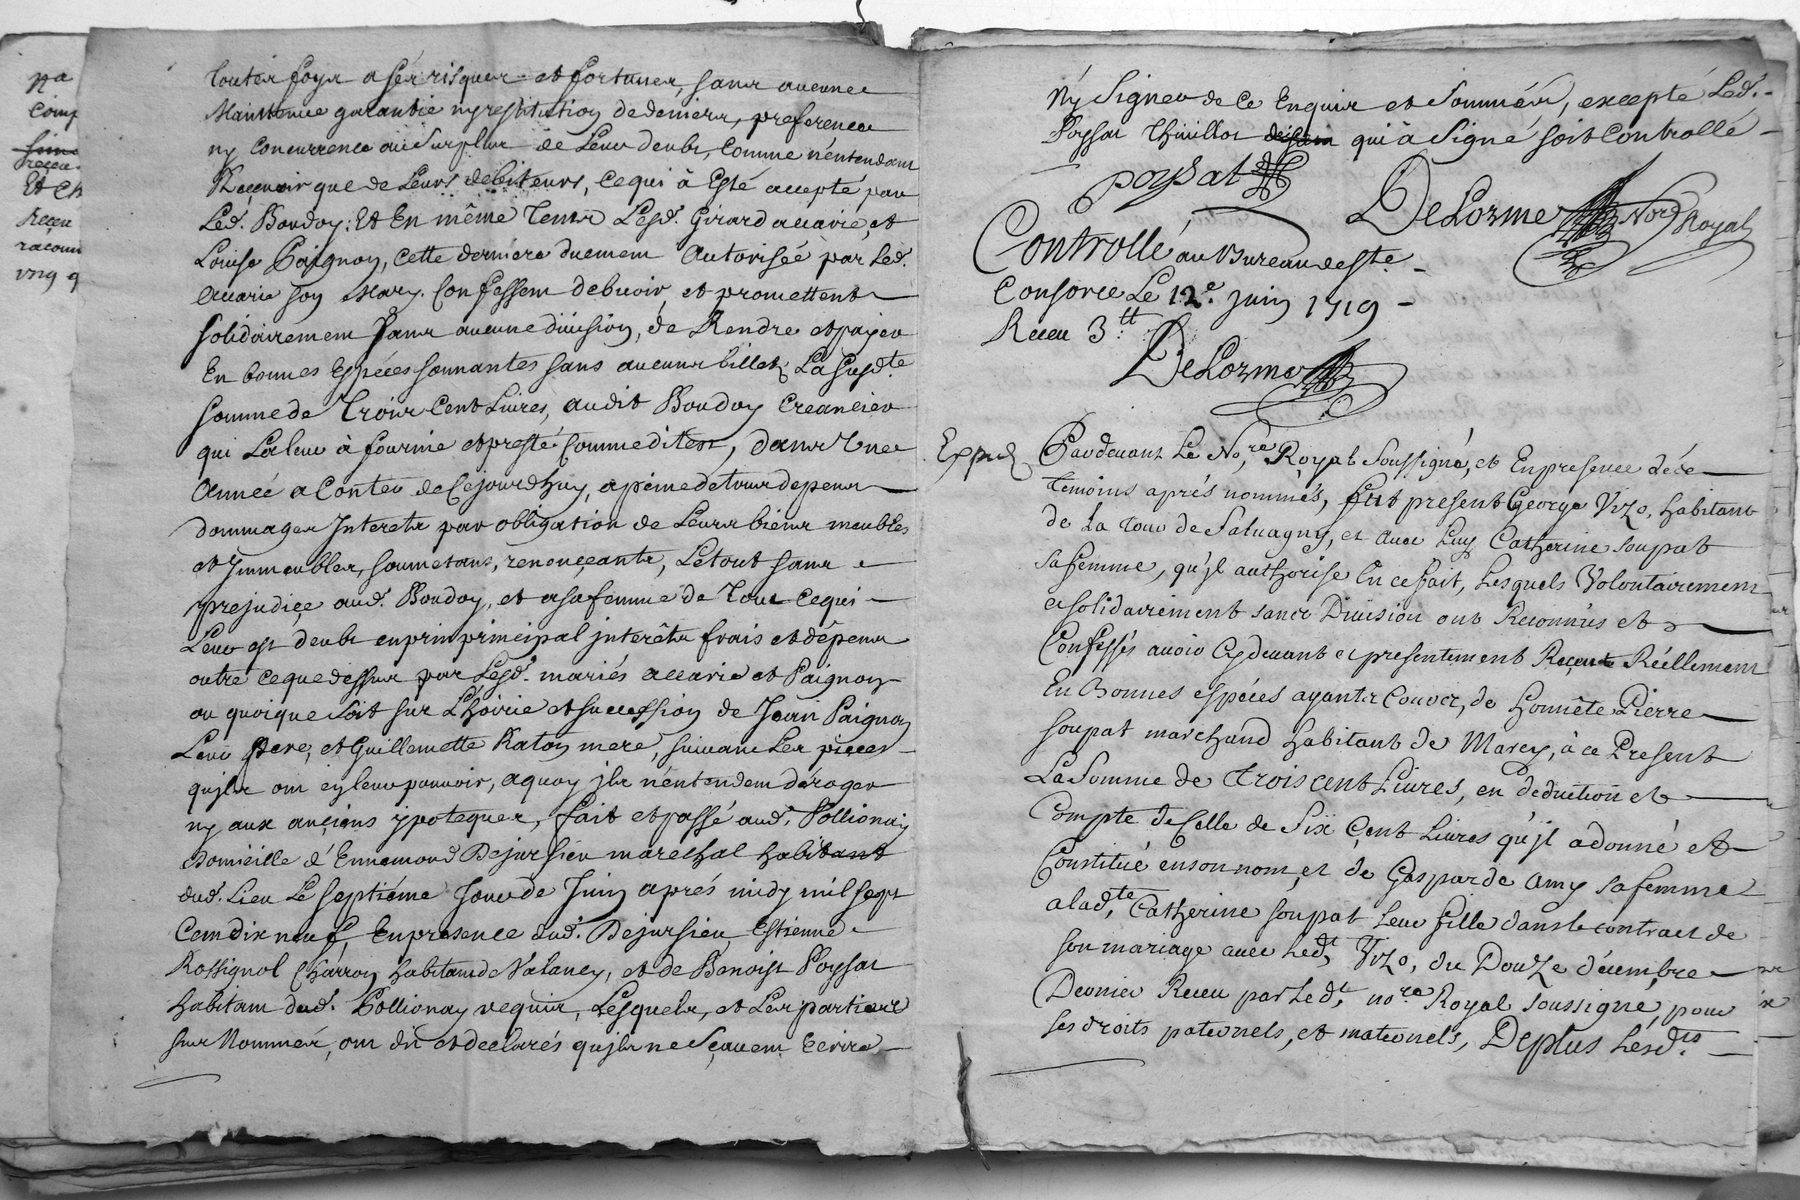 na
comp
receu
Et
Receu
racom
vng q
touter foys a ses risques et fortunes, sans aucune
Maintenue garantie ny restitution de deniers, preference
ny concurrence au surplus de leur deubt, comme n'entendant
Recevoir que de Leurs débiteurs, ce qui à Esté accepté par
Led. Boudoy: Et En même Temps Lesd. Girard accarie, et
Louise Paignon, cette derniere duement Autorisée par Led.
accarie son Mary. Confessent debvoir et promettent
solidairement sans aucune division, de Rendre et payer
En bonnes Espéces sonnantes sans aucuns billets La susdte
somme de Trois Cent Livres, audit Boudoy Creancier
qui La leur à fournie et presté comme dit est, dans Une
Année a Conter de Cejourdhuy, apeine de tous depens
dommages Interets par obligation de Leurs biens meubles
et Immeubles, soumetans, renonçants, Le tout sans
prejudiçe aud. Boudoy, et asa femme de Tout Cequi
Leur est deubt enprinprincipal interêts frais et dépens
outre ceque dessus par Lesd. mariés accarie et Paignon
ou quoique soit sur L'hoirie et succession de Jean Paignon
Leur Pere, et Guillemette Raton mere, suivant Les pieces
qu'jls ont en leur pouvoir, aquoy jls n'entendent déroger
ny aux ançiens ypoteques, fait et passé aud. Pollionay
Domicille d'Ennemond Dejursieu marechal habitant
dud. Lieu Le septiéme Jour de Juin aprés midy mil sept
Cent dix neuf, Enpresence dud. Dejursieu, Estienne
Rossignol Charron habitant de Valancy, et de Benoist Poyssat
habitant dud. Pollionay requis, Lesquels, et Les parties
sus Nommés, ont dit et declarés qu'jls ne sçavent Ecrire
Ny Signer de Ce Enquis et Sommés, excepté Led.
Poyssat Thuillot qui à Signé soit Controllé
poyssat
DeLorme Nore Royal
Controllé au Bureau de Ste
Consorce Le 12e. juin 1719
Receu 3tt
DeLorme
Exped
Pardevant Le Nore, Royal Soussigné, et En presence dése
temoins aprés nommés, fut present George Vizo, habitant
de La Tour de Salvagny, et avec Luy Catherine soupat
sa femme, qu'jl authorise En ce fait, Lesquels Volontairement
et solidairement sans Division ont Reconnus et
Confessés avoir Cydevant et presentement Reçeut Réellement
En Bonnes espéces ayants Couvs, de Honnête Pierre
soupat marchand habitant de Marcy, à ce Present
La Somme de Trois cent Livres, en deduction et
Compte de Celle de Six Cent Livres qu'jl adonné et
Constitué en son nom, et de Gasparde Amy sa femme
aladte, Catherine soupat leur fille dans le contract de
son mariage avec Ledt, Vizo, du Douze décembre
Dernier Receu par Ledt, nore Royal soussigné, pour
ses droits paternels, et maternels, Deplus Lesdts